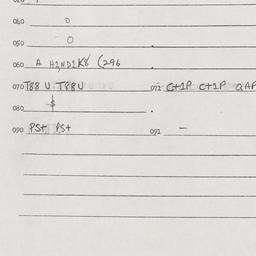 040 0
050 0
060 A H2ND1K8 (296
070 T88 U T88U 071 C+1P C+1P
080 $
090 PS+ PS+ 091 -